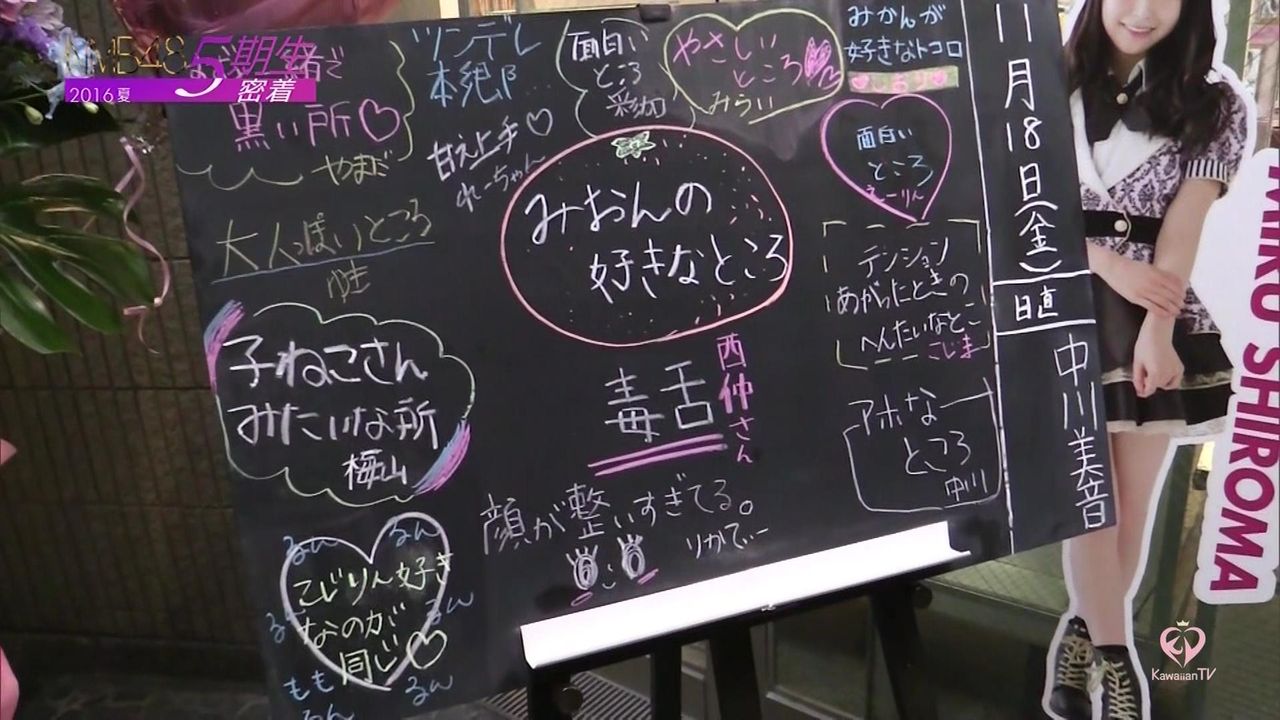 NMB48 5期生
2016夏 密着
黒い所♡
やまだ
ツンデレ
本郷
甘え上手♡
れーちゃん
面白い
ところ
彩加
やさしい
ところ♡♡
みらい
みかんが
好きなトコロ
♥しおり♥
面白い
ところ
えーりん
11月18日(金)
日直
中川美音
大人っぽいところ
ゆき
みおんの
好きなところ
テンション
あがったときの
へんたいなとこ
こじま
子ねこさん
みたいな所
梅山
毒舌
西仲さん
アホな
ところ
中川
顔が整いすぎてる。
りかてぃー
るん るん
こじりん好き
なのが
同じ♡
るん
もも
るん
るん
MIRU SHIROMA
KawaiianTV